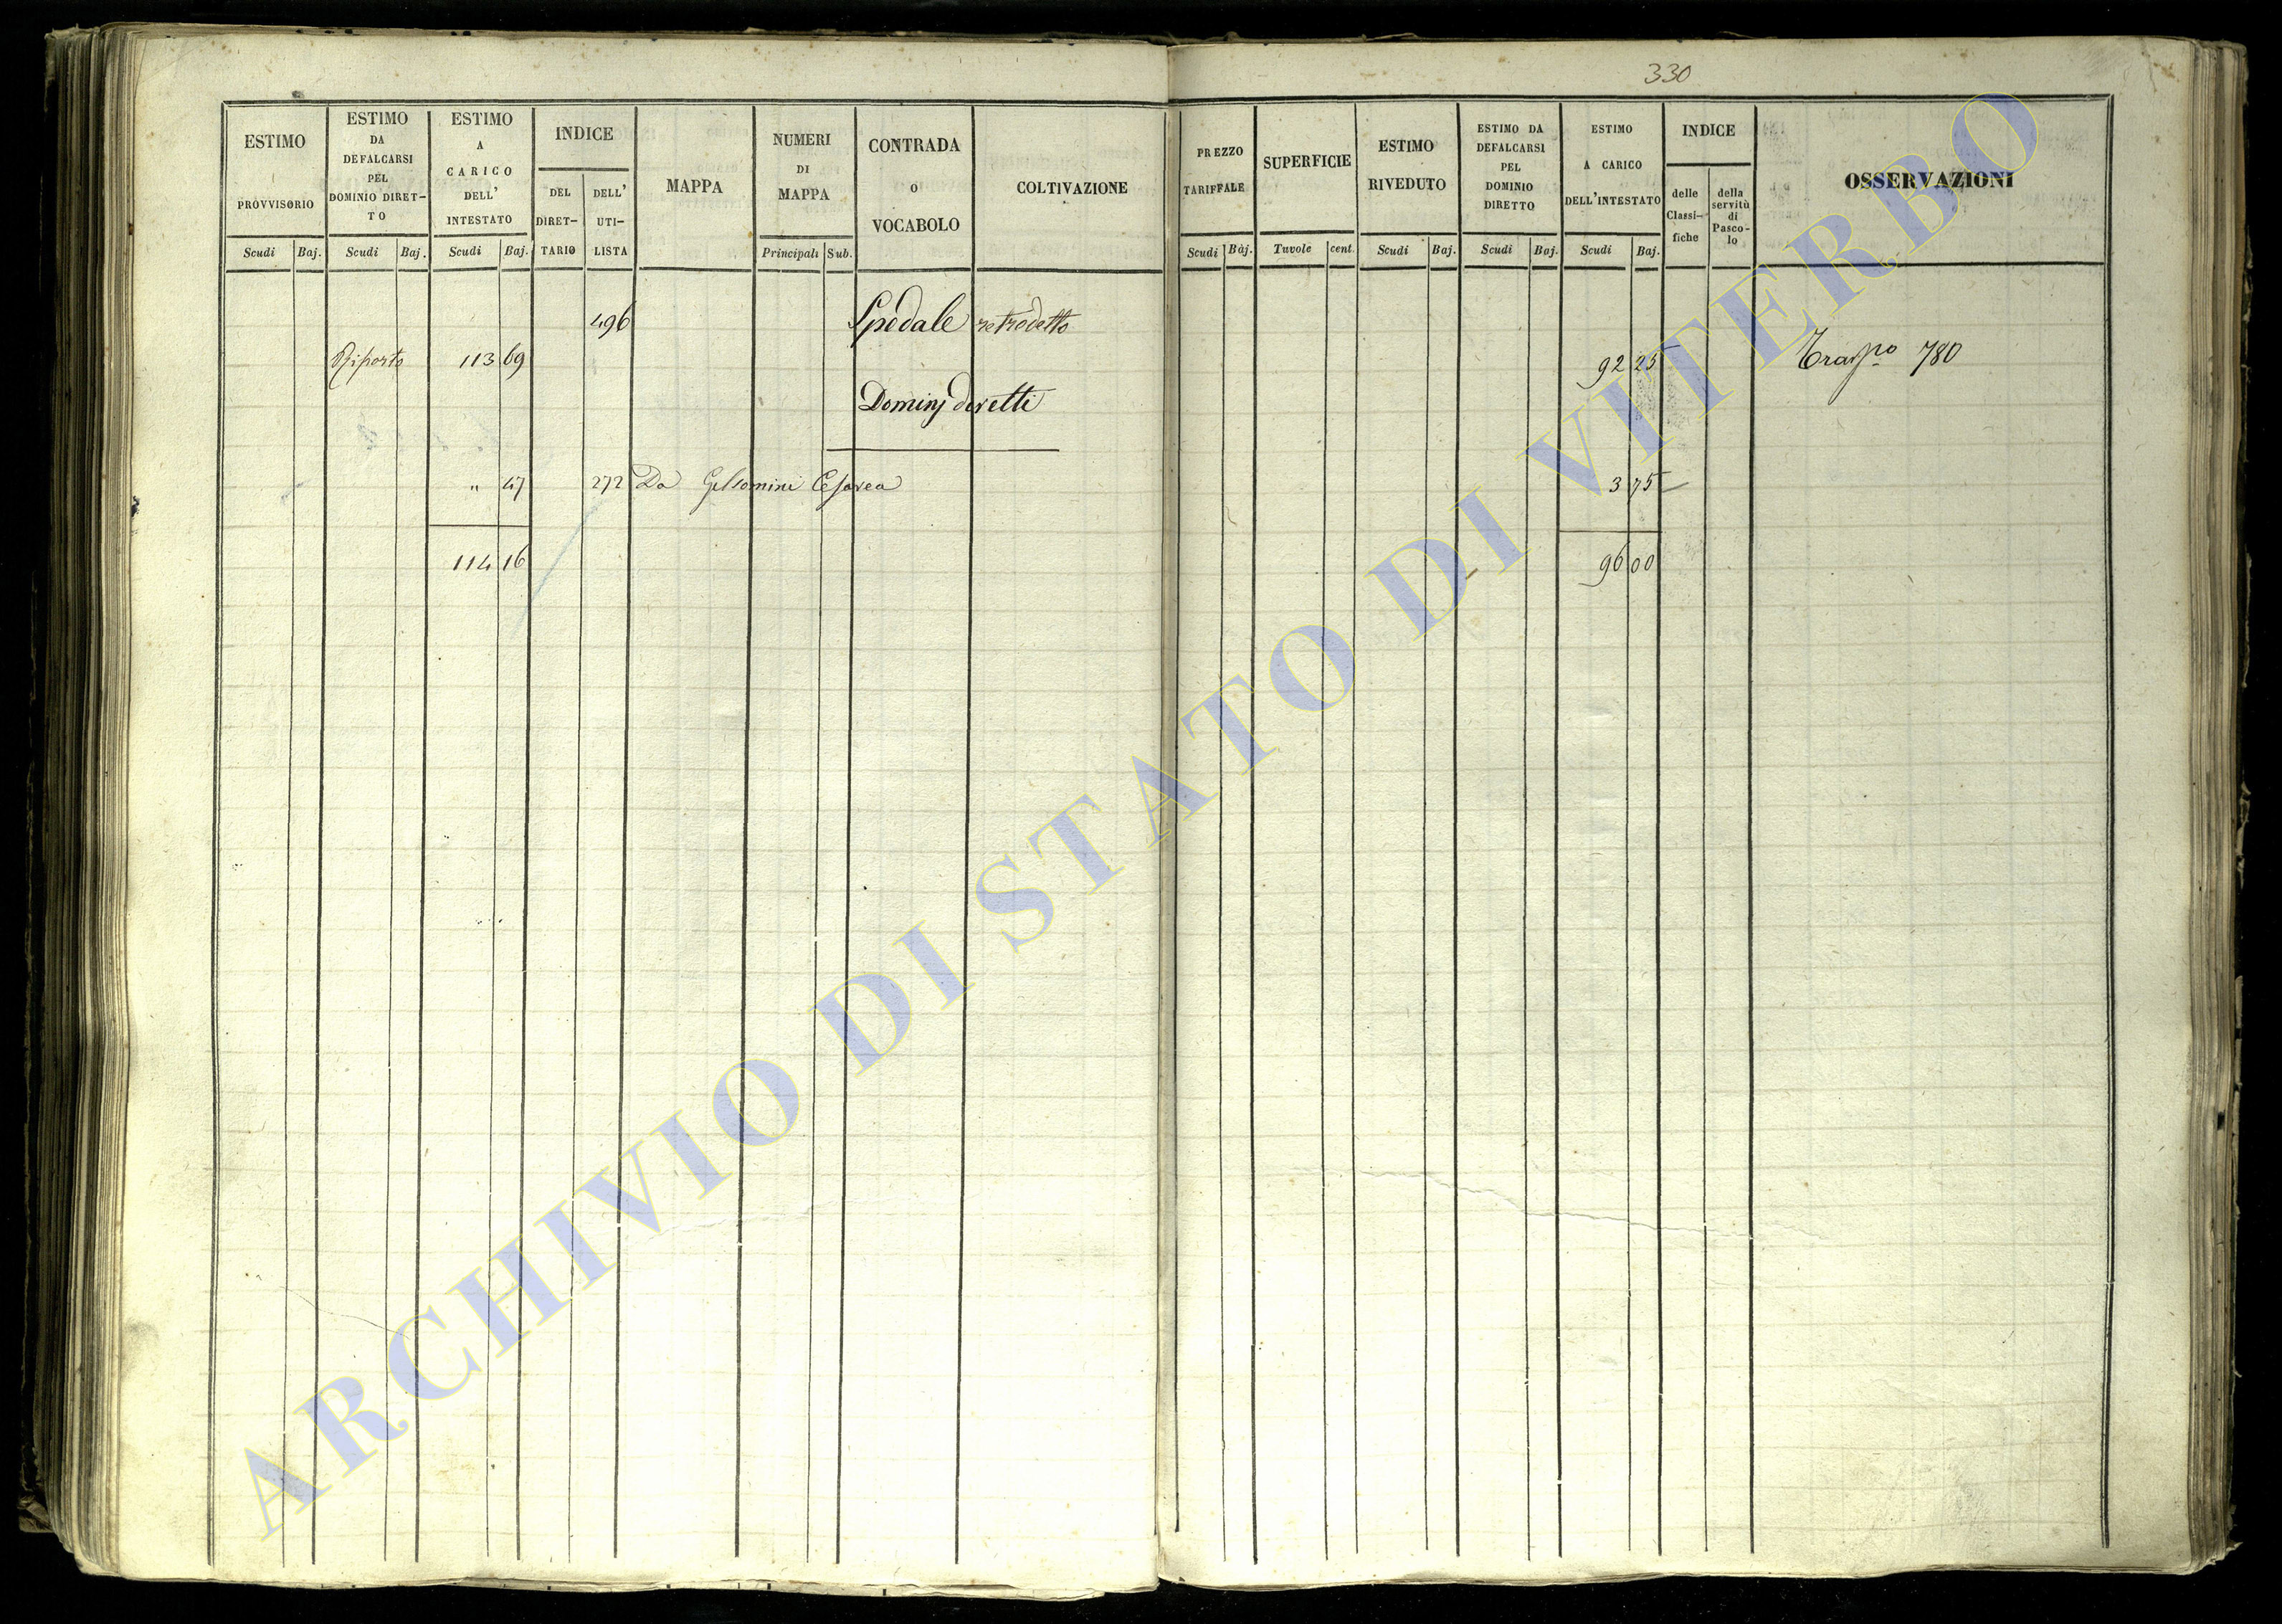 330
ESTIMO PROVVISORIO
Scudi Baj.
ESTIMO DA DEFALCARSI PEL DOMINIO DIRET- TO
Scudi Baj.
ESTIMO A CARICO DELL' INTESTATO
Scudi Baj.
INDICE
DEL DIRET- TARIO
DELL' UTI- LISTA
MAPPA
NUMERI DI MAPPA
Principali Sub.
CONTRADA o VOCABOLO
COLTIVAZIONE
PREZZO TARIFFALE
Scudi Baj.
SUPERFICIE
Tavole cent.
ESTIMO RIVEDUTO
Scudi Baj.
ESTIMO DA DEFALCARSI PEL DOMINIO DIRETTO
Scudi Baj.
ESTIMO A CARICO DELL'INTESTATO
Scudi Baj.
INDICE
delle Classi- fiche
della servitù di Pasco- lo
OSSERVAZIONI
496 Spedale retrodetto
Riporto 113 69 92 25 Trasp.o 780
Dominj diretti
" 47 272 Da Gelsomini Cesarea 3 75
114 16 96 00
ARCHIVIO DI STATO DI VITERBO